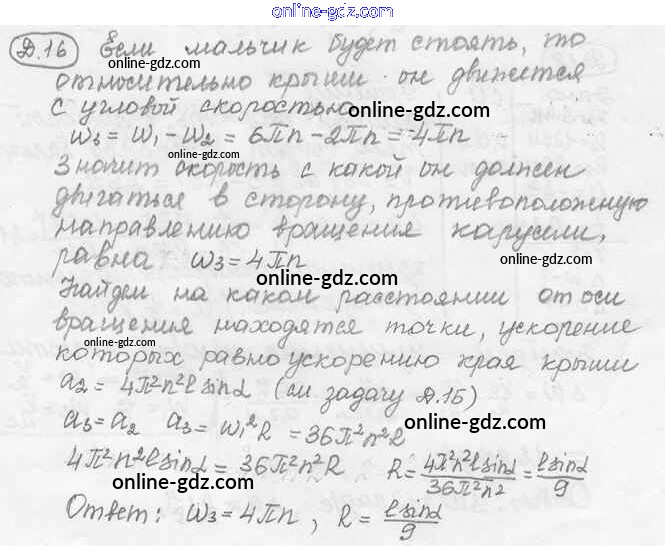 online-gdz.com
Д.16 Если мальчик будет стоять, то
относительно крыши он движется
с угловой скоростью
online-gdz.com
online-gdz.com
ω₃ = ω₁ - ω₂ = 6πn - 2πn = 4πn
online-gdz.com
Значит скорость с какой он должен
двигаться в сторону, противоположную
online-gdz.com
направлению вращения карусели,
равна ω₃ = 4πn
online-gdz.com
online-gdz.com
Найдем на каком расстоянии от оси
вращения находятся точки, ускорение
online-gdz.com
которых равно ускорению края крыши
a₂ = 4π²n²l sinα (см задачу Д.15)
a₃ = a₂ a₃ = ω₁²R = 36π²n²R
online-gdz.com
4π²n²l sinα = 36π²n²R R = 4π²n²l sinα / 36π²n² = l sinα / 9
online-gdz.com
online-gdz.com
Ответ: ω₃ = 4πn, R = l sinα / 9